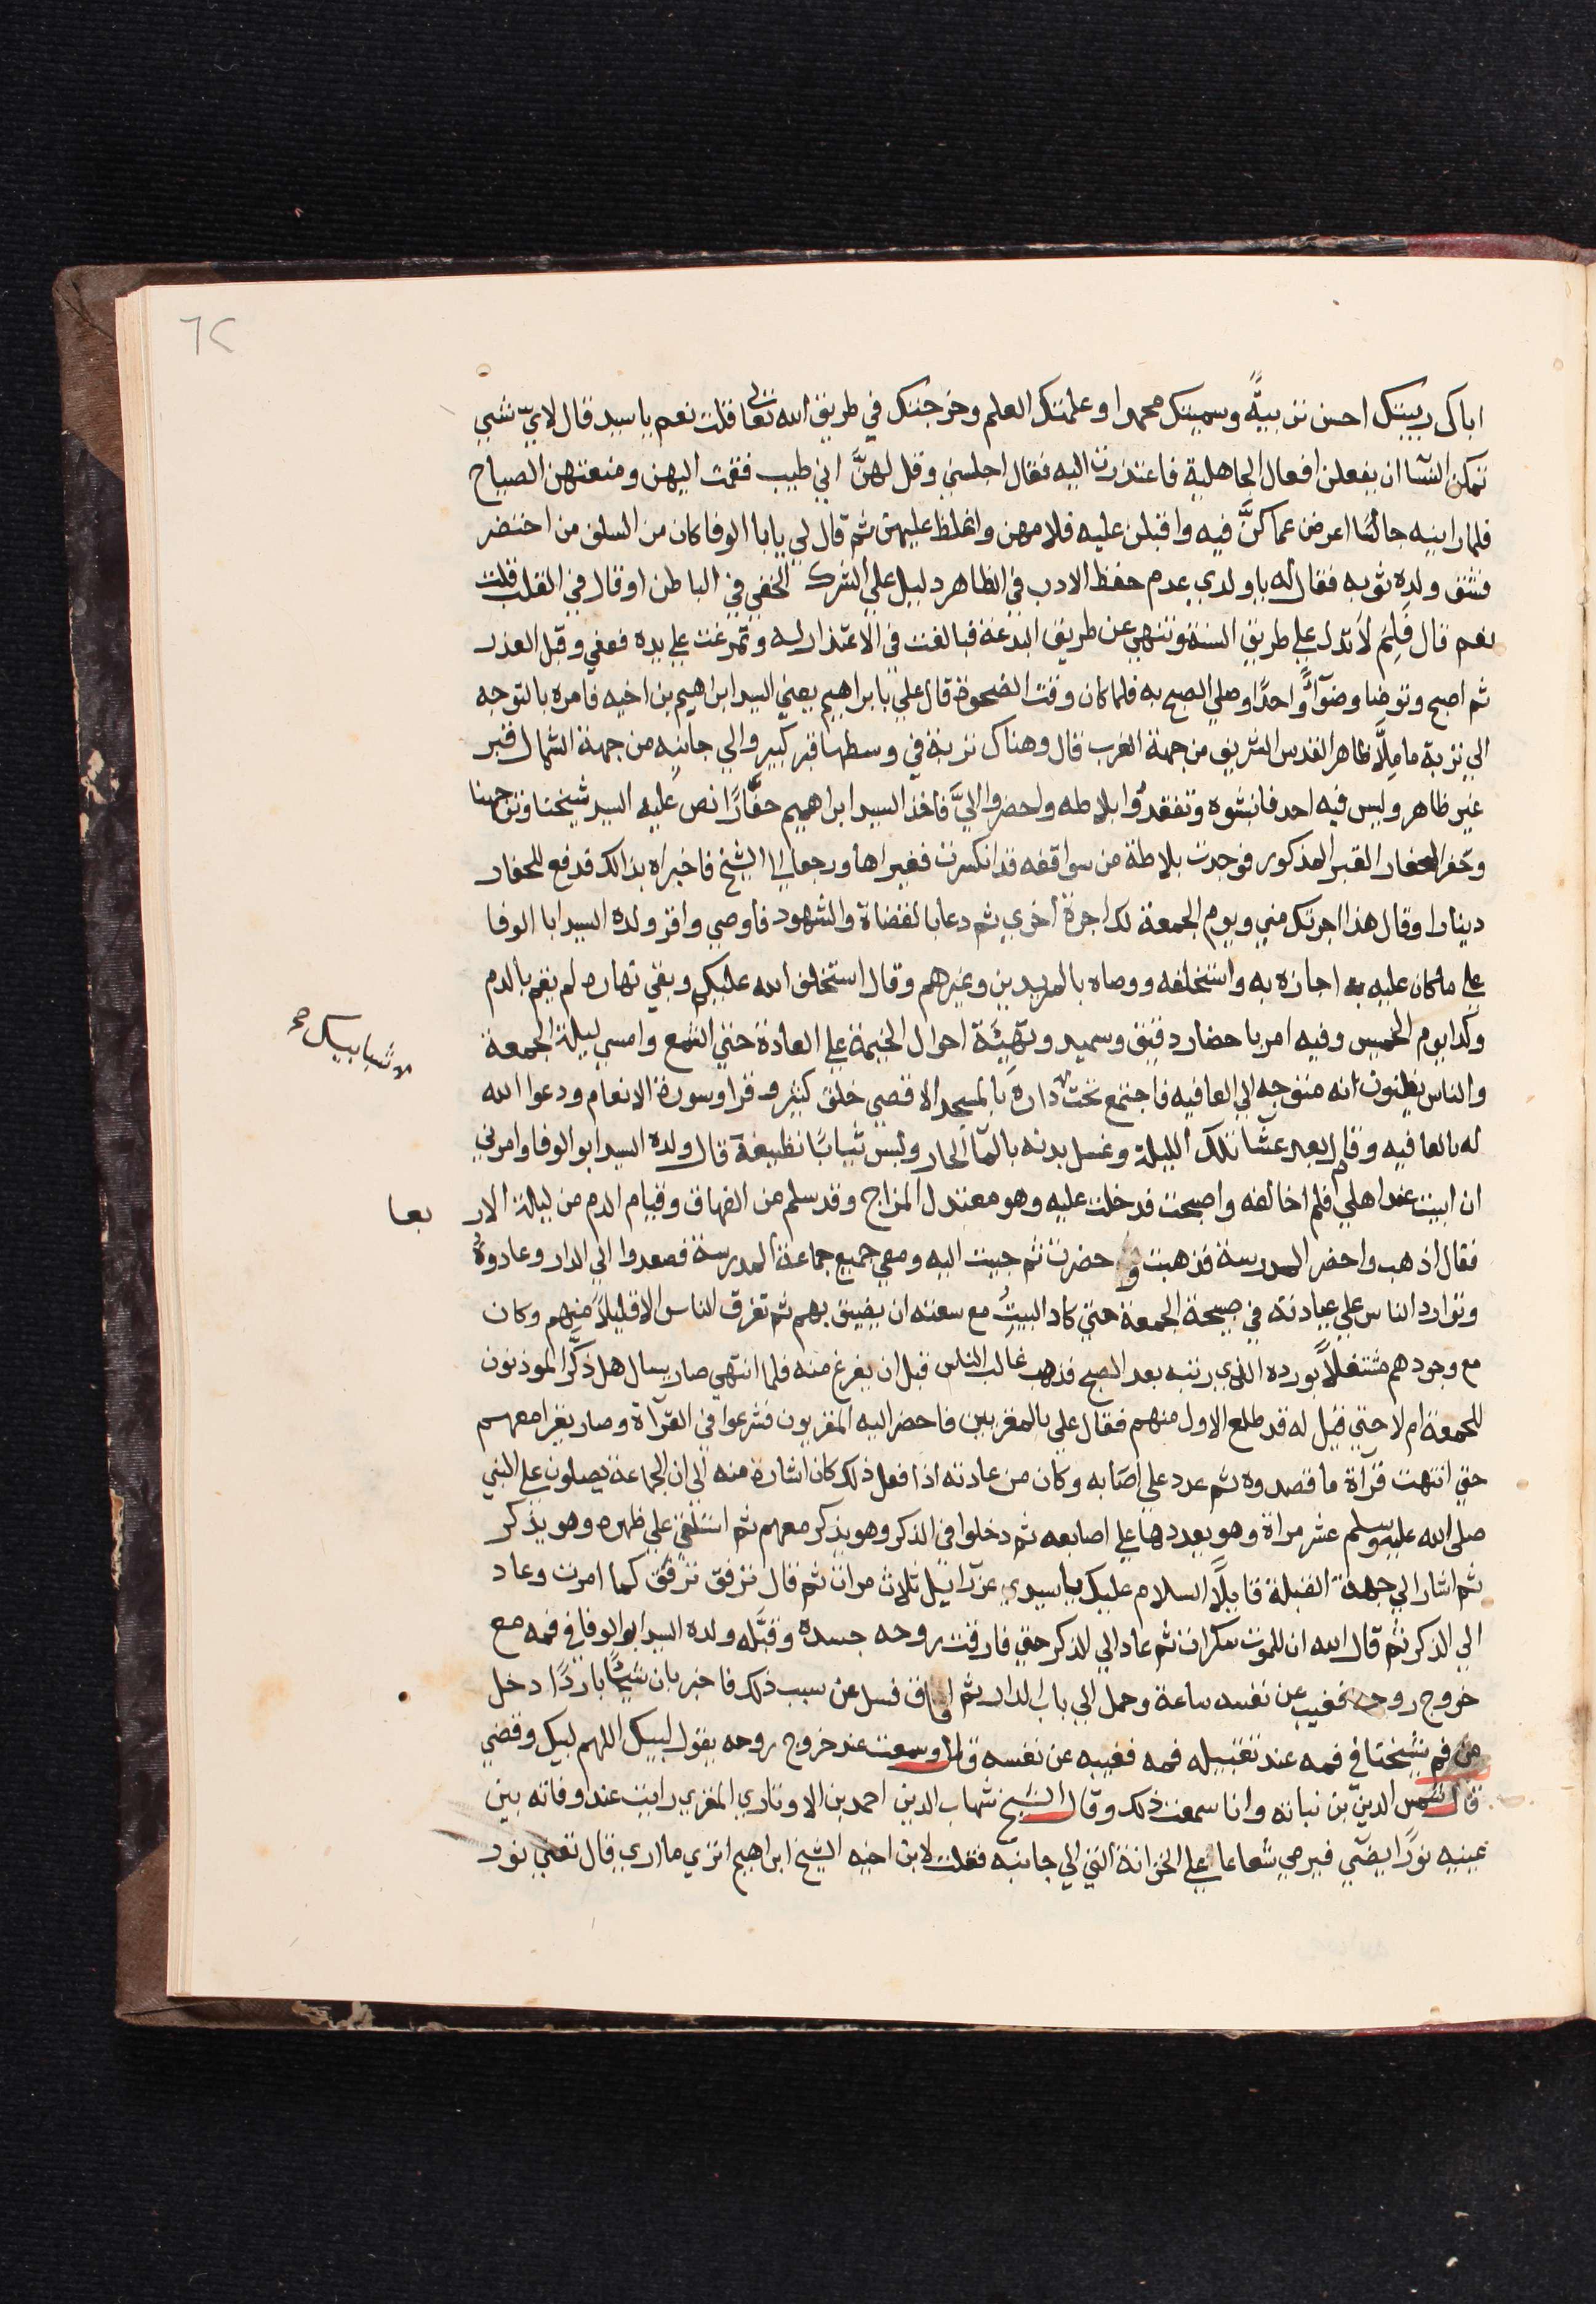 ٦٢
اباكى ربيتك احسن تربيةً وسميتك محمدا وعلمتك العلم وخرجتك في طريق الله تعالى قلت نعم يا سيد قال لايّ شي
تمكن النسا ان يفعلن افعال الجاهلية فاعتذرت اليه فقال اجلسني وقل لهنَّ اني طيب فقمت اليهن ومنعتهن الصياح
فلما راينه جالسًا اعرض عما كنَّ فيه واقبلن عليه فلامهن واغلظ عليهن ثم قال لي يابا الوفا كان من السلف من احتضر
فشق ولده ثوبه فقال له ياولدي عدم حفظ الادب في الظاهر دليل علي الشرك الخفي في الباطن او قال في القلب قلت
نعم قال فَلِمَ لا تدل علي طريق السنة وتنهي عن طريق البدعة فبالغت في الاعتذار له وتمرغت علي يده فعفي وقبل العذر
ثم اصبح وتوضا وضوآً واحدًا وصلي الصبح به فلما كان وقت الضحوة قال علي بابراهيم يعني السيد ابراهيم بن اخيه فامره بالتوجه
الي تربة ماملاَّ ظاهر القدس الشريف من جهة الغرب قال وهناك تربة في وسطها قبر كبير والي جانبه من جهة الشمال قبر
غير ظاهر وليس فيه احد فانبشوه وتفقدُوا بلاطه واحضروا اليَّ فاخذ السيد ابراهيم حفَّارًا نص عليه السيد شيخنا وتوجهنا
وحفر الحفار القبر المذكور فوجدت بلاطة من سواقفه قد انكسرت فغيراها ورجعا الي الشيخ فاخبراه بذالك فدفع للحفار
دينارا وقال هذا اجرتك مني ويوم الجمعة لك اجرة اخري ثم دعا بالقضاة والشهود فاوصي واقر ولده السيد ابا الوفا
علي ما كان عليه اجازه به واستخلفه ووصاه بالمريدين وغيرهم وقال استخلف الله عليكم وبقي نهاره لم يقم بالدم
وكذا يوم الخميس وفيه امر باحضار دقيق وسميد وتهيئة احوال الختمة علي العادة حتي الشمع وامسي ليلة الجمعة
شبابيك صح
والناس يظنون انه متوجه الي العافيه فاجتمع تحت دارة بالمسجد الاقصي خلق كثير وقراوسورة الانعام ودعوا الله
له بالعافيه وقام بعد عشا تلك الليلة وغسل بدنه بالمآ الحار ولبس ثيابًا نظيفة قال ولده السيد ابو الوفا وامرني
ان ابيت عند اهلي فلم اخالفه واصبحت فدخلت عليه وهو معتدل المزاج وقد سلم من الفهاق وقيام الدم من ليلة الار بعا
فقال اذهب واحضر المدرسة فذهبت و حضرت ثم جيت اليه ومعي جميع جماعة المدرسة فصعدوا الي الدار وعادوهُ
وتوارد الناس علي عيادته في صبيحة الجمعة حتي كاد البيتُ مع سعته ان يضيق بهم ثم تفرق الناس الا قليلاً منهم وكان
مع وجودهم مشتغلاً بورده الذي رتبه بعد الصبح فذهب غالب الناس قبل ان يفرغ منه فلما انتهي صار يسال هل ذكَّر الموذنون
للجمعة ام لا حتي قيل له قد طلع الاول منهم فقال علي بالمغربين فاحضر اليه المغربون فشرعوا في القرآة وصار يقرا معهم
حتي انتهت قرآة ما قصدوه ثم عدد علي اصابه وكان من عادته اذا فعل ذلك كان اشارة منه الي ان الجماعة يصلون علي النبي
صلي الله عليه وسلم عشر مراة وهو يعددها علي اصابعه ثم دخلوا في الذكر وهو يذكر معهم ثم استلقي علي ظهره وهو يذكر
ثم اشار الي جهة القبلة قايلاً السلام عليك ياسيدي عزرآئيل ثلاث مرات ثم قال ترفق ترفق كما امرت وعاد
الي الذكر ثم قال الله ان للموت سكرات ثم عاد الي الذكر حتي فارقت روحه جسده وقبَّله ولده السيد ابو الوفا في فمه مع
خروج روحه فغيب عن نفسه ساعة وحمل الي باب الدار ثم افاق فسل عن سبب ذلك فاخبر بان شيئًا باردًا دخل
من فم شيخنا في فمه عند تقبيله فمه فغيبه عن نفسه قال وسمعت عند خروج روحه يقول لبيك اللهم لبيك وقضي
قال شمس الدين بن نباته وانا سمعت ذلك وقال الشيخ شهاب الدين احمد بن الاوتاري المغربي رايت عند وفاته بين
عينيه نورًا يضي فيرمي شعاعا علي الخزانة التي الي جانبه فقلت لابن اخيه الشيخ ابراهيم اتري ما اري قال تعني نور